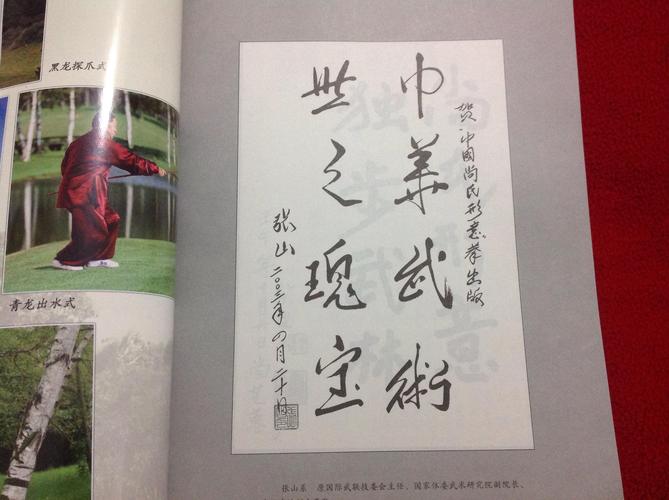 黑龙探爪式
青龙出水式
贺中國尚氏形意拳出版
中華武術
世之瑰宝
张山
二〇〇三年四月二十日
张山系 原国际武联技委会主任、国家体委武术研究院副院长、